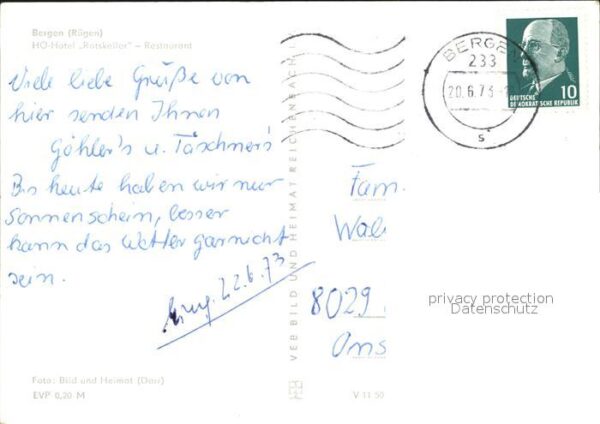 Bergen (Rügen)
HO-Hotel „Ratskeller" – Restaurant
Viele liebe Grüße von
hier senden Ihnen
Göhler's u. Täschner's
Bis heute haben wir nur
Sonnenschein, besser
kann das Wetter garnicht
sein.
22.6.73
Foto: Bild und Heimat (Darr)
EVP 0,20 M
VEB BILD UND HEIMAT REICHENBACH i. V.
V 11 50
BERGEN
233
20.6.73
s
DEUTSCHE
DEMOKRATISCHE REPUBLIK
10
Fam.
Wal
8029
Ons
privacy protection
Datenschutz